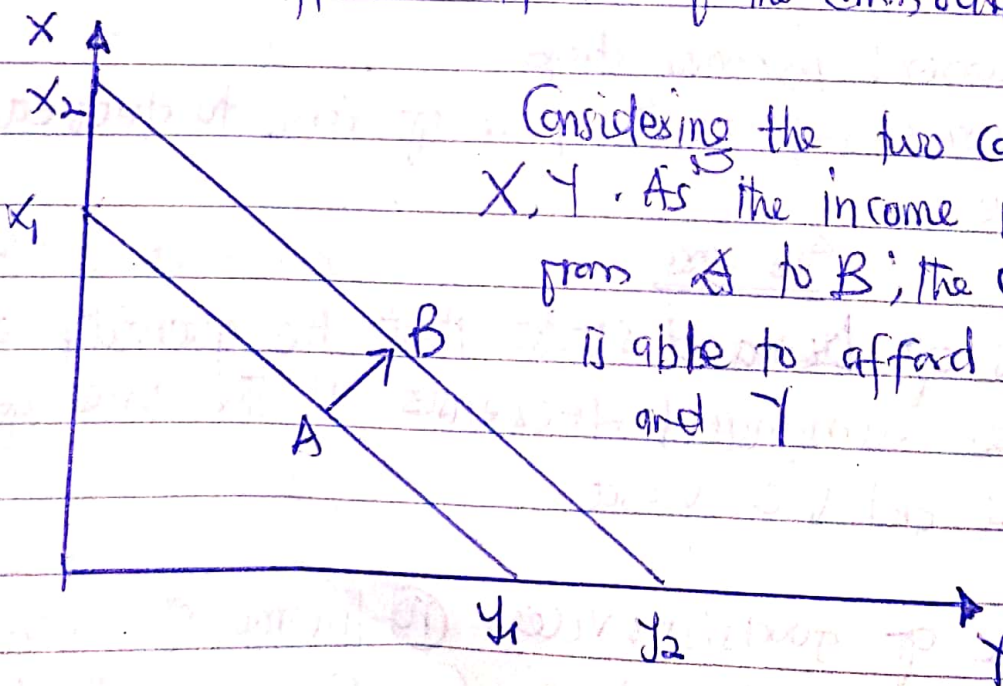 of the
X
X2
Considering the two
X, Y. As the income
X1
from A to B; the
B
is able to afford
A
and Y
y1
y2
Y